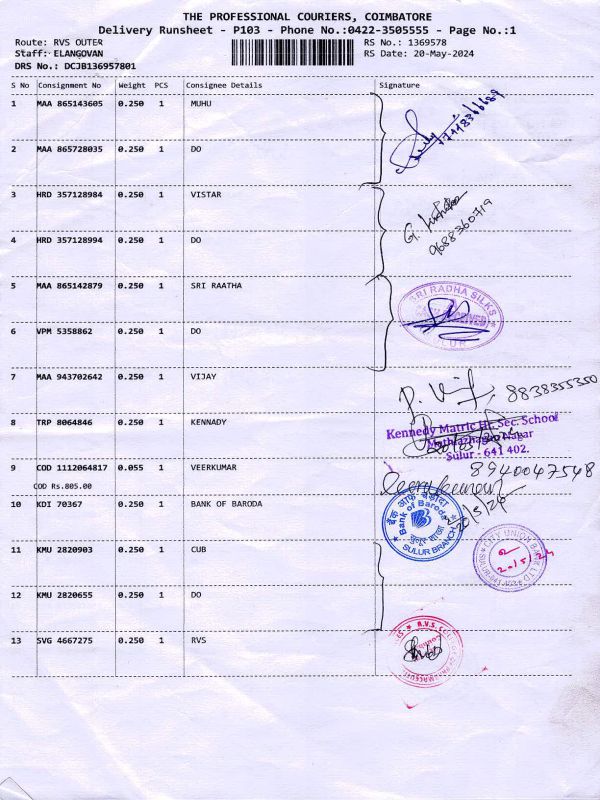 THE PROFESSIONAL COURIERS, COIMBATORE
Delivery Runsheet - P103 - Phone No.:0422-3505555 - Page No.:1
Route: RVS OUTER RS No.: 1369578
Staff: ELANGOVAN RS Date: 20-May-2024
DRS No.: DCJB136957801
S No Consignment No Weight PCS Consignee Details Signature
1 MAA 865143605 0.250 1 MUHU
2 MAA 865728035 0.250 1 DO
3 HRD 357128984 0.250 1 VISTAR
9688360719
4 HRD 357128994 0.250 1 DO
5 MAA 865142879 0.250 1 SRI RAATHA
SRI RADHA SILKS
SULUR
6 VPM 5358862 0.250 1 DO
7 MAA 943702642 0.250 1 VIJAY
8838355350
8 TRP 8064846 0.250 1 KENNADY
Kennedy Matric Hr. Sec. School
Sulur - 641 402.
9 COD 1112064817 0.055 1 VEERKUMAR
8940047548
COD Rs.805.00
10 KDI 70367 0.250 1 BANK OF BARODA
20/5/24
बैंक ऑफ़ बड़ौदा
Bank of Baroda
SULUR BRANCH
11 KMU 2820903 0.250 1 CUB
CITY UNION BANK LTD
20/5/24
12 KMU 2820655 0.250 1 DO
13 SVG 4667275 0.250 1 RVS